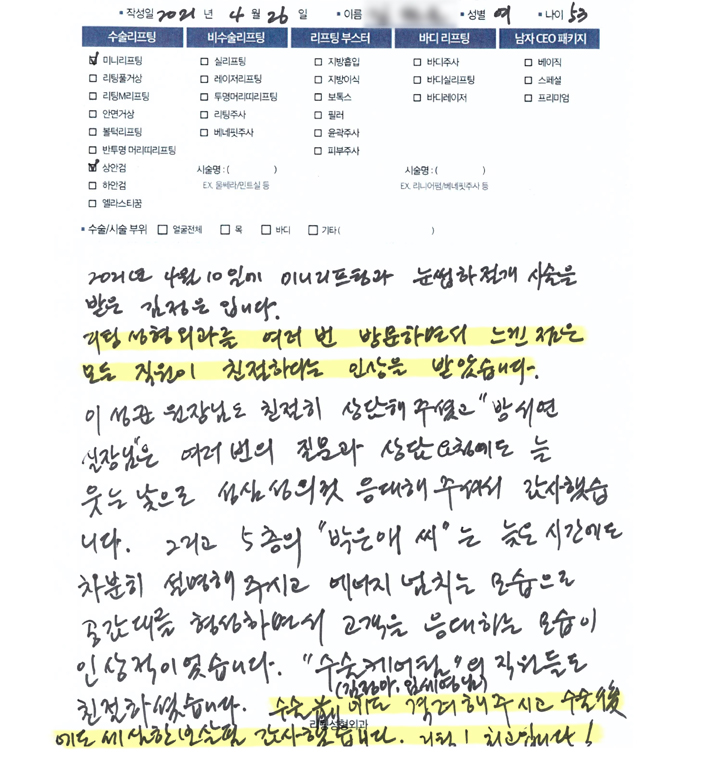 ▪ 작성일 2021 년 4 월 26 일 ▪ 이름 ▪ 성별 여 ▪ 나이 53
수술리프팅 비수술리프팅 리프팅 부스터 바디 리프팅 남자 CEO 패키지
미니리프팅 실리프팅 지방흡입 바디주사 베이직
리팅풀거상 레이저리프팅 지방이식 바디실리프팅 스페셜
리팅M리프팅 투명머리띠리프팅 보톡스 바디레이저 프리미엄
안면거상 리팅주사 필러
볼턱리프팅 베네핏주사 윤곽주사
반투명 머리띠리프팅 피부주사
상안검 시술명 : ( ) 시술명 : ( )
하안검 EX. 울쎄라/민트실 등 EX. 리니어펌/베네핏주사 등
엘라스티꿈
▪ 수술/시술 부위 얼굴전체 목 바디 기타 ( )
2021년 4월 10일에 미니리프팅과 눈썹하절개 시술을
받은 김정은 입니다.
리팅성형외과를 여러 번 방문하면서 느낀 점은
모든 직원이 친절하다는 인상을 받았습니다.
이성균 원장님도 친절히 상담해 주셨고 "방서연
실장님"은 여러 번의 질문과 상담 요청에도 늘
웃는 낯으로 성심성의껏 응대해 주셔서 감사했습
니다. 그리고 5층의 "박은애 씨"는 늦은 시간에도
차분히 설명해 주시고 에너지 넘치는 모습으로
공감대를 형성하면서 고객을 응대하는 모습이
인상적이었습니다. "수술케어팀"의 직원들도
(김정아, 임세영님)
친절하셨습니다. 수술 에도 격려해주시고 수술後
리팅성형외과
에도 세심한 보살핌 감사했습니다. 리팅! 최고입니다!